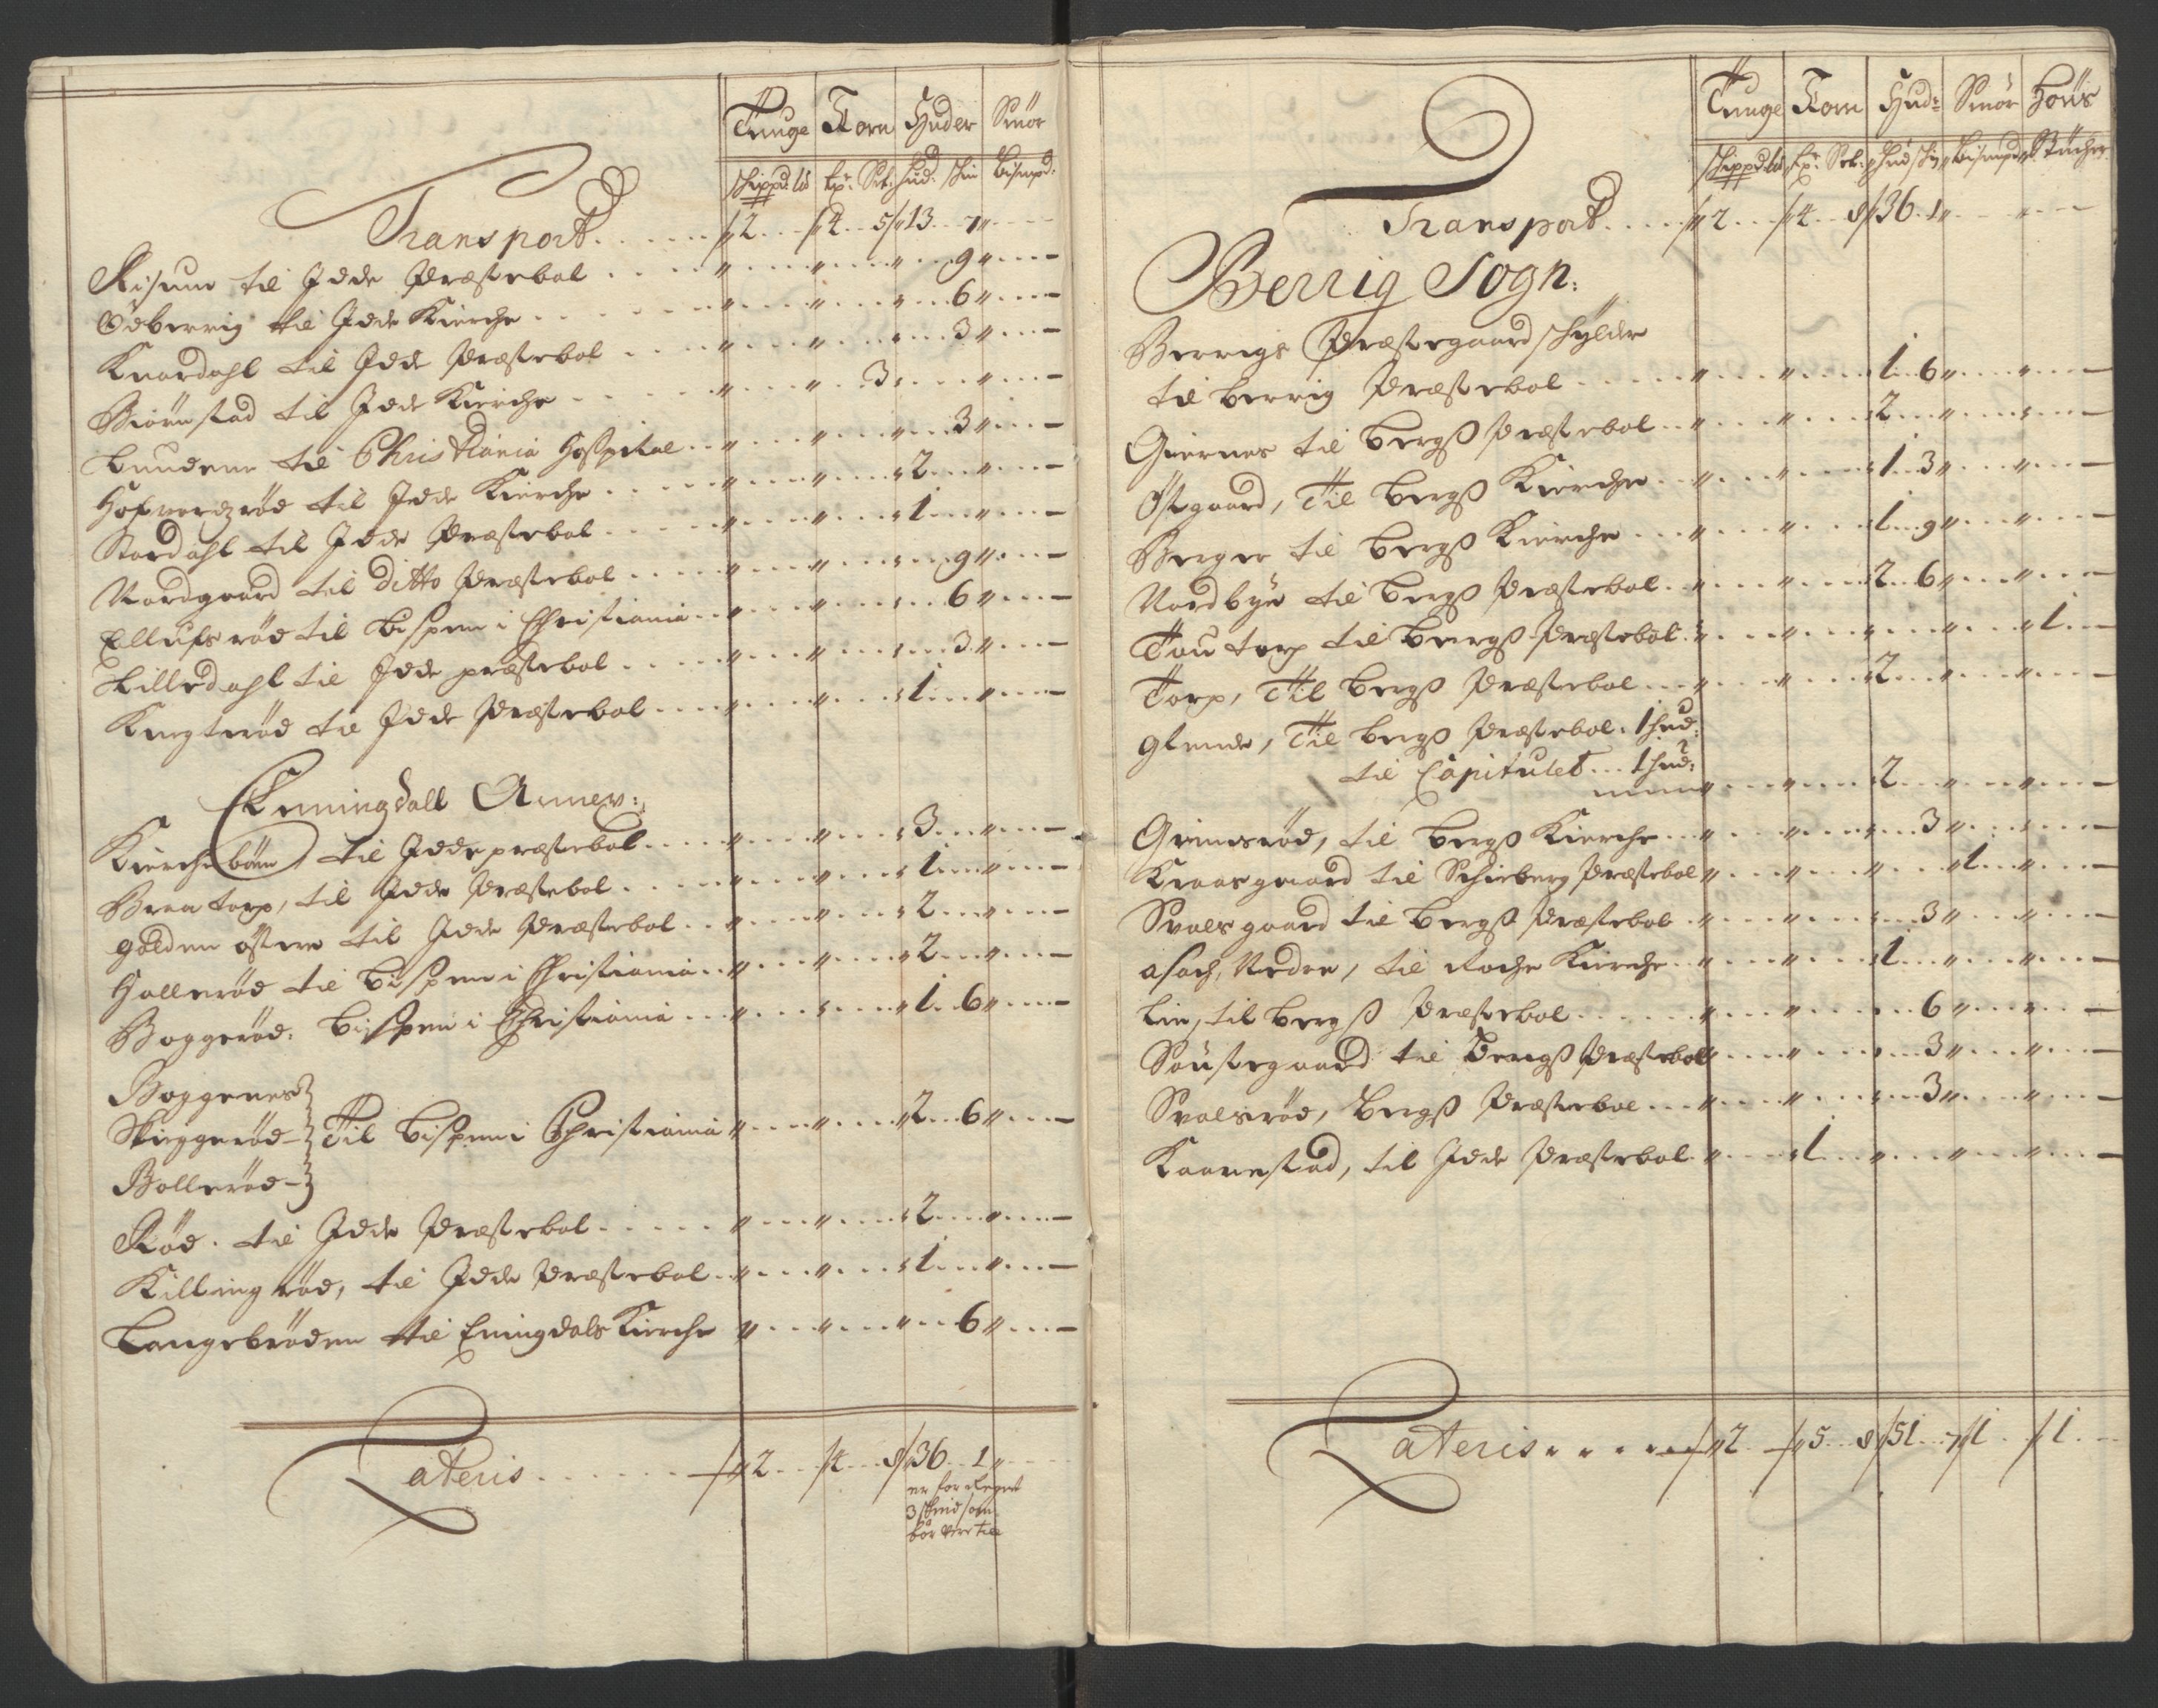 Tunge Korn Huder Smör
schippd: lis tp: Set: Hud: schin bismpd:
Transport . . . . . . 2 . . 4 . . 5 13 . . 7
Risum til Idde Præstebol . . . . 9
Ödberrig til Idde Kierche . . . . 6
Knardahl til Idde Præstebol . . . . 3
Biörnstad til Idde Kierche . . . . 3
Lundene til Christiania Hospital . . 3
Hofverdzröd til Idde Kierche . . . . 2
Stordahl til Idde Præstebol . . . . 1
Nordgaard til ditto Præstebol . . . . 9
Ellufsröd til Bispen i Christiania . . 6
Lilledahl til Idde præstebol . . . . 3
Kregteröd til Idde Præstebol . . . . 1
Enningdall Annex:
Kiercheböen, til Idde præstebol . . . . 3
Braatorp, til Idde Præstebol . . . . 1
Golden östre til Idde Præstebol . . 2
Holleröd til Bispen i Christiania . . 2
Boggeröd: Bispen i Christiania . . . 1 . . 6
Boggenes
Skieggeröd Til Bispen i Christiania 2 . . 6
Bolleröd
Röd. til Idde Præstebol . . . . . 2
Killingröd, til Idde Præstebol . . 1
Langebröden til Eningdals Kierche . . 6
Lateris . . . . . . 2 . . 4 . . 8 36 . . 1
er for Regnet
3 skind som
bör være till
Tunge Korn Hud: Smör Höns
schippd: lis tp: Set: Hud schin bismpd Stücher
Transport . . . . 2 . . 4 . . 8 36 . 1
Berrig Sogn:
Berrigs Præstegaard schylder
til berrig Præstebol . . . . . 1 . . 6
Giernes til bergß Præstebol . . 2
Östgaard, Til bergß Kierche . . 1 . . 3
Berger til bergß Kierche . . . 1 . . 9
Nordbye til bergß Præstebol . . 2 . . 6
Toutorp til bergß Præstebol . . 1
Torp, Til bergß Præstebol . . . 2
Glende, Til bergß Præstebol . 1 hud:
til Capitulet . . . 1 hud: 2
Grimsröd, til bergß Kierche . . 3
Kraasgaard til Schieberg Præstebol 1
Svalesgaard til bergß Præstebol . . 3
Asach, Nedre, til Roche Kierche . . 1
Lie, til bergß Præstebol . . . . . . 6
Söustegaard til bergß Præstebol . . 3
Svalsröd, bergß Præstebol . . . 3
Kaanestad, til Idde Præstebol . . 1
Lateris . . . . . 2 . . 5 . . 8 51 . . 7 1 . . 1